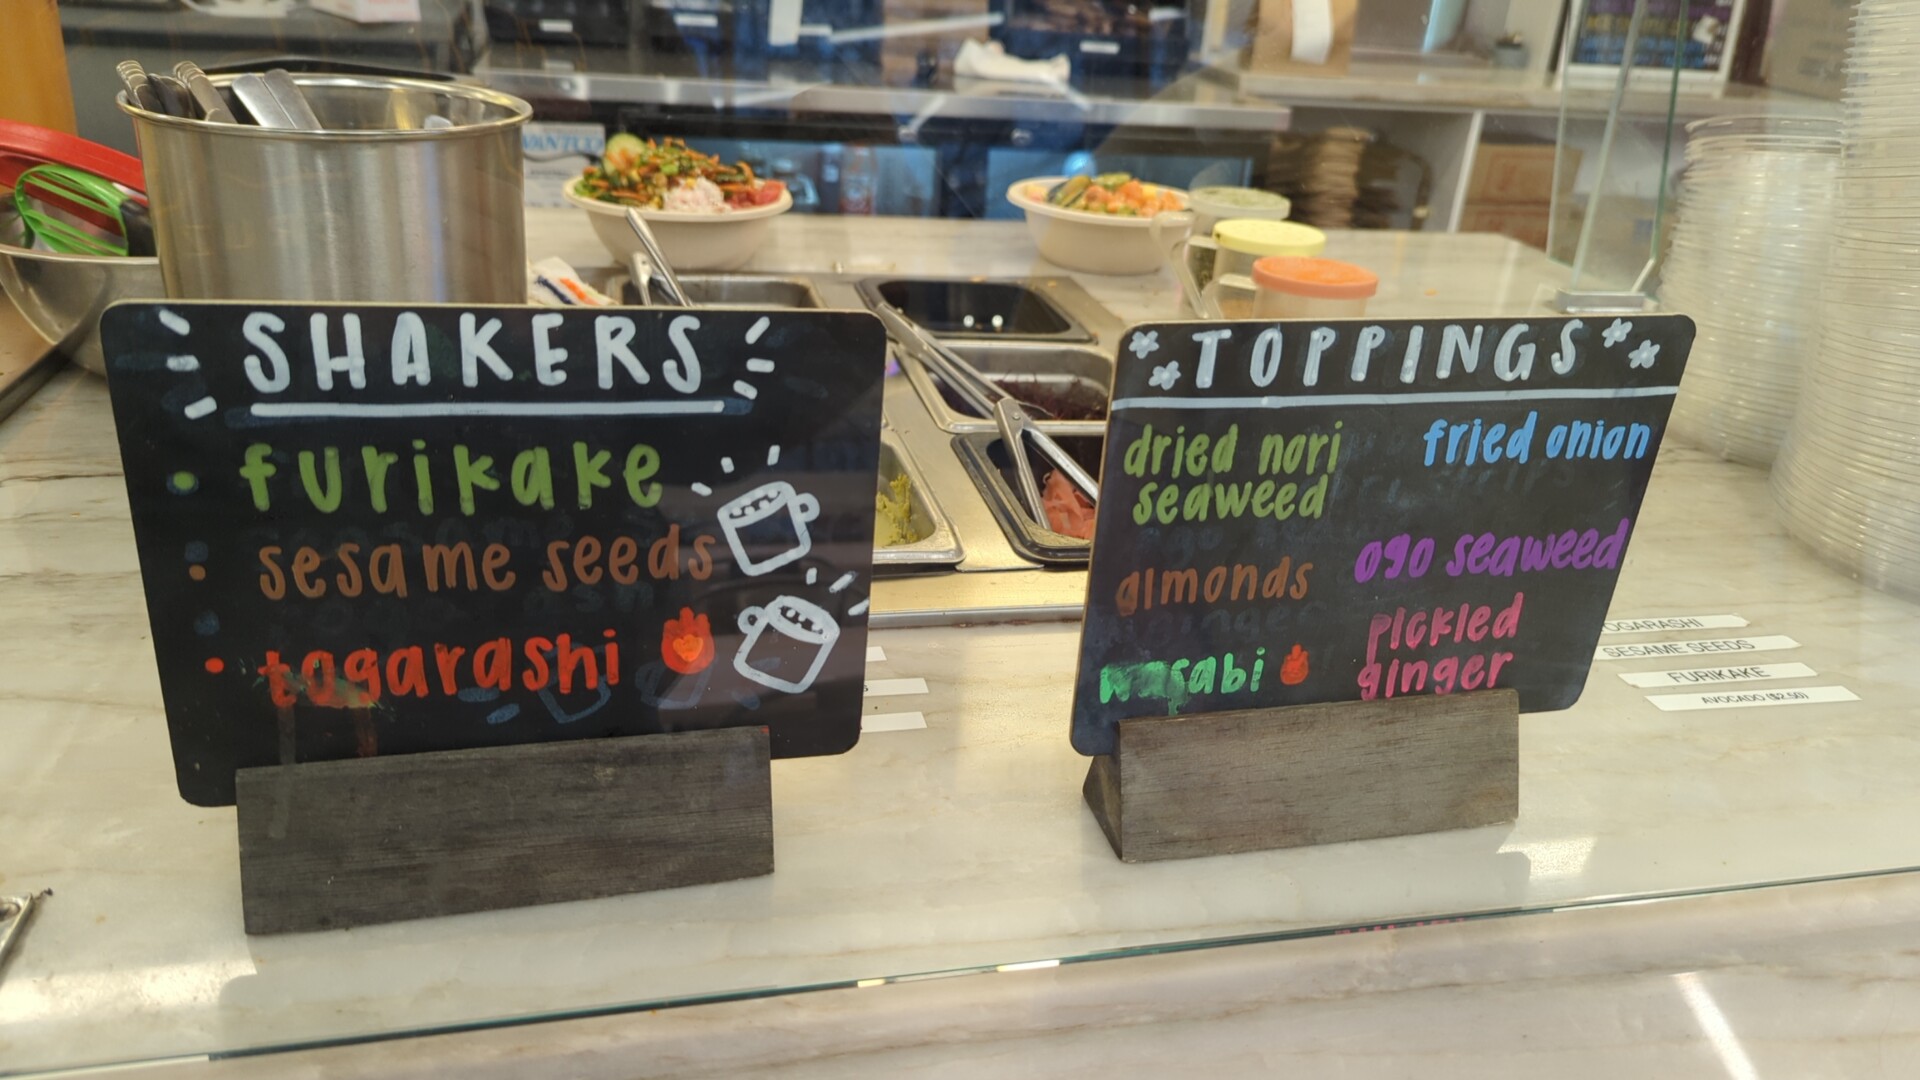 SHAKERS
furikake
sesame seeds
togarashi
TOPPINGS
dried nori
seaweed
fried onion
almonds
ogo seaweed
wasabi
pickled
ginger
OGARASHI
SESAME SEEDS
FURIKAKE
AVOCADO ($2.50)